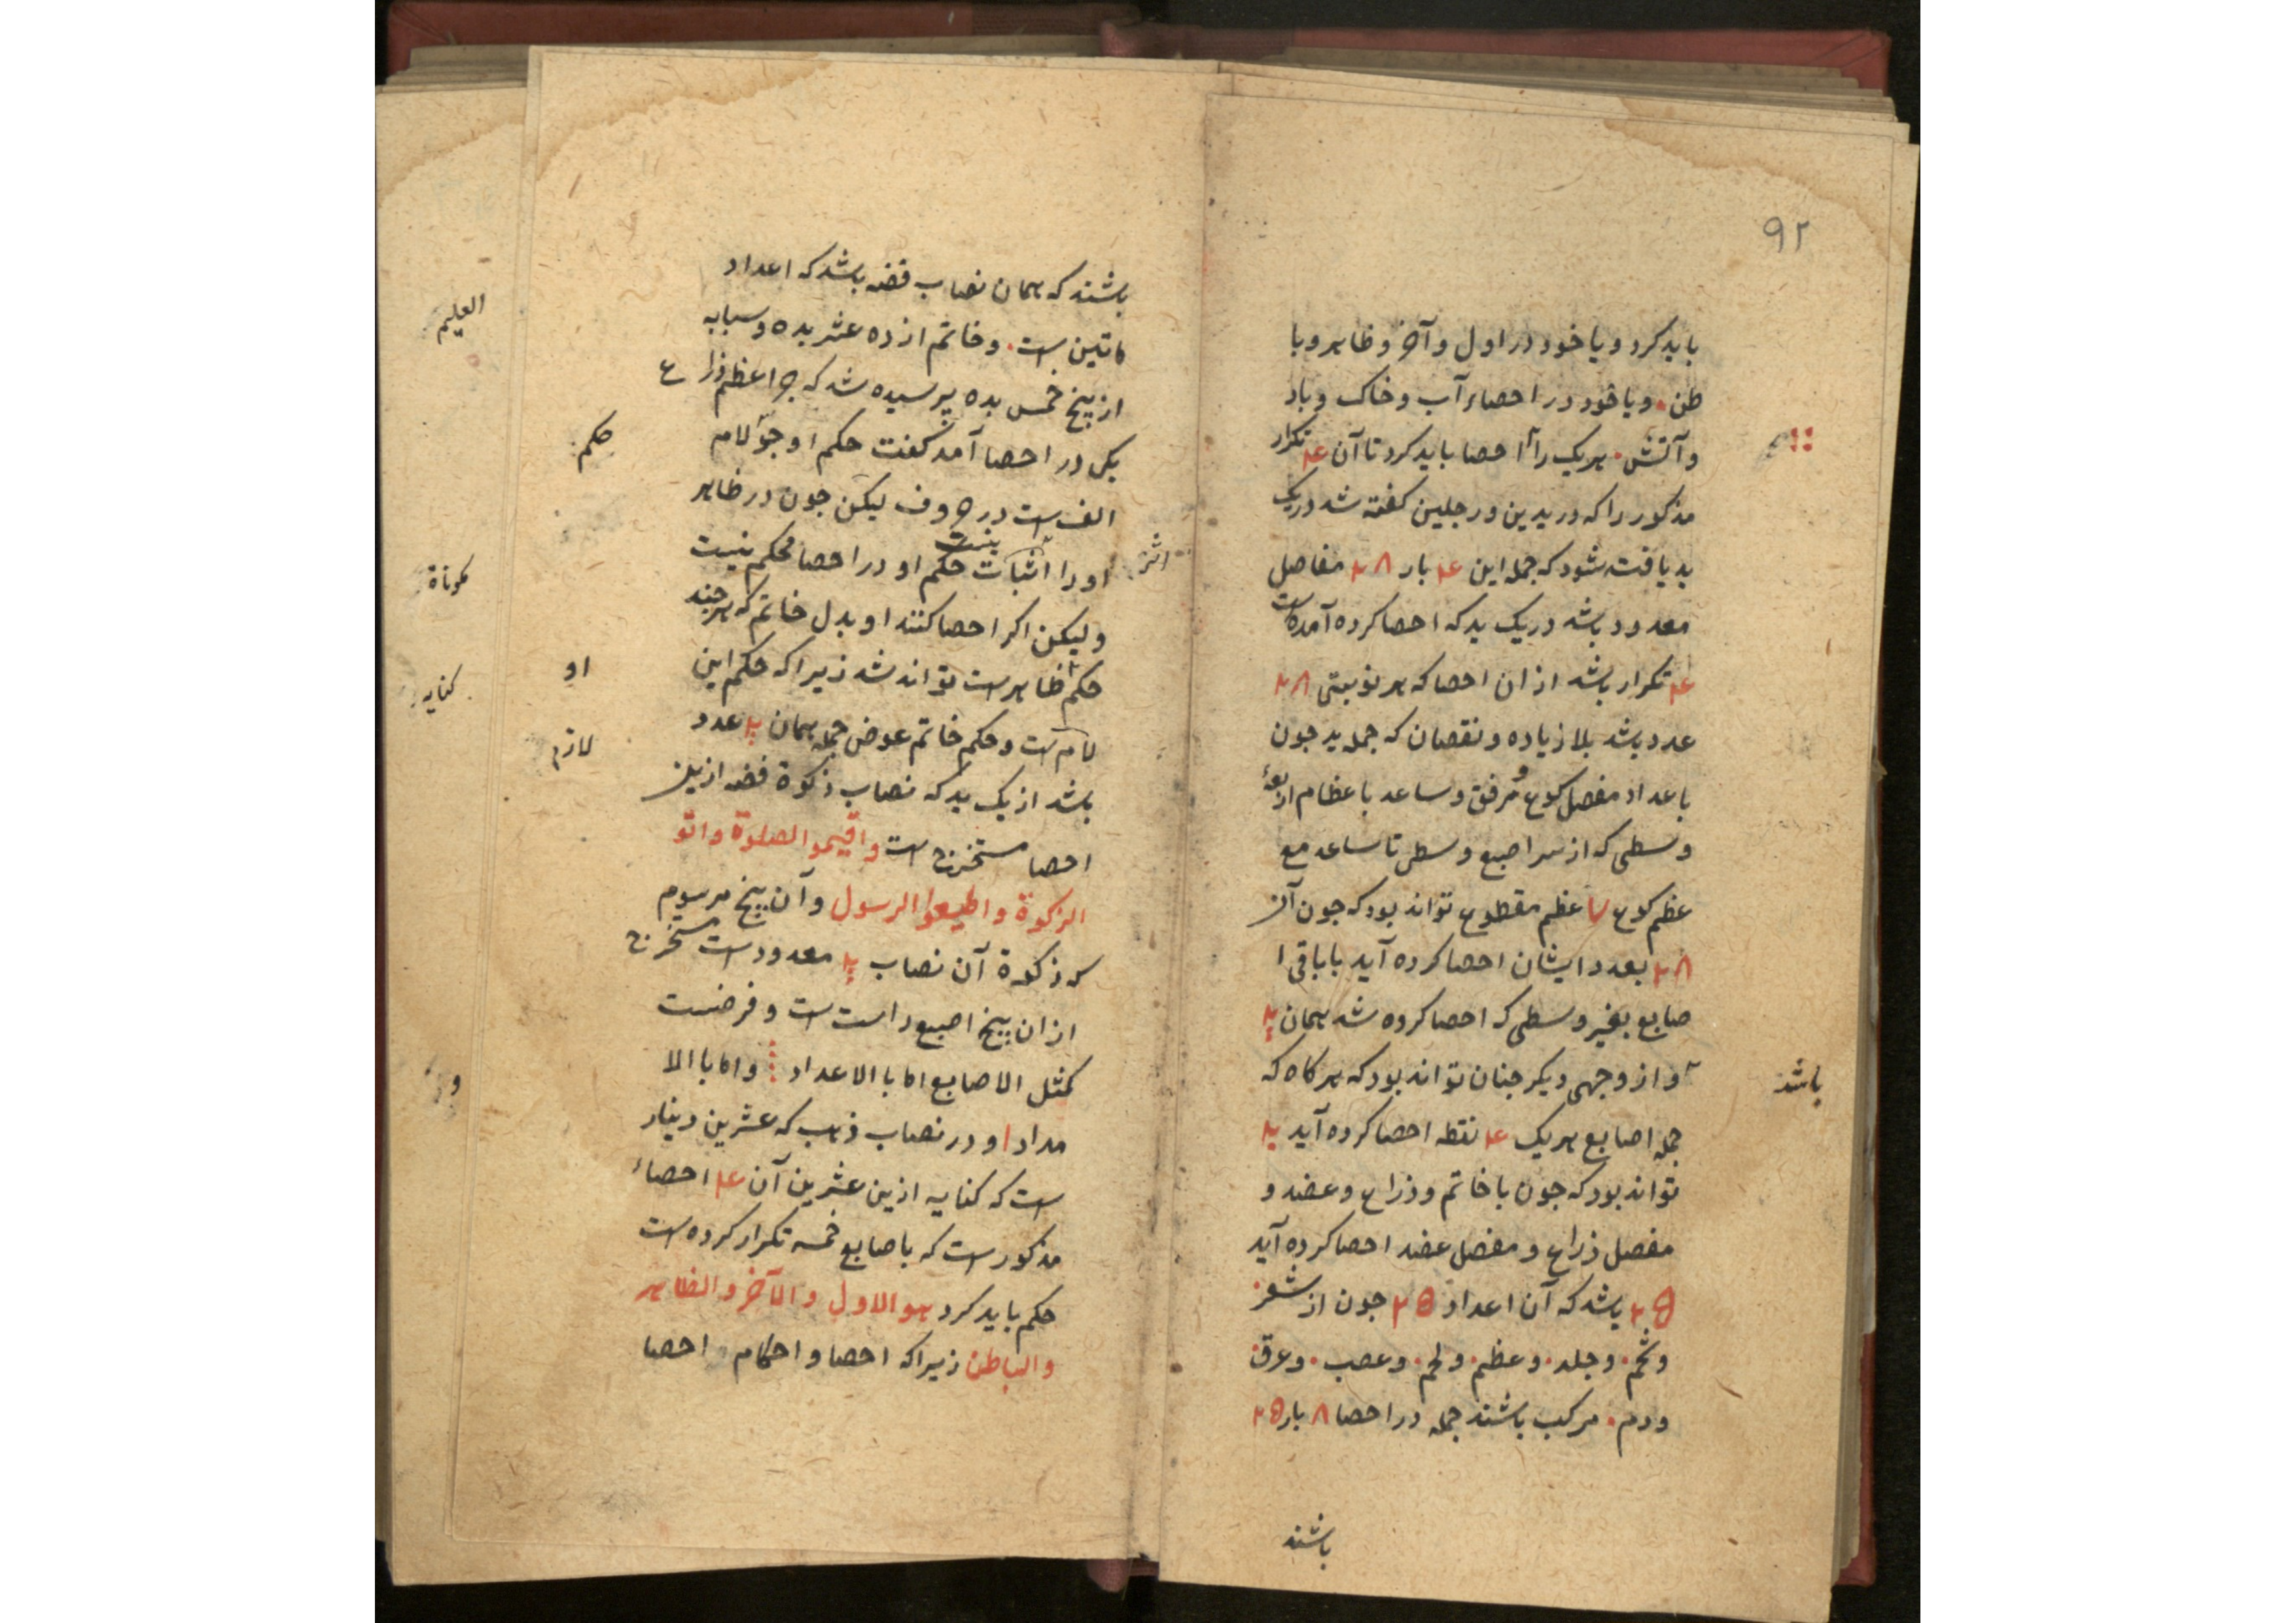 ۹۲
باید کرد و یا خود در اول و آخر و ظاهر و با
طن. و یا خود در احصاء آب و خاک و باد
و آتش. هر یک را احصا باید کرد تا آن ۴ تکرار
مذکور را که در یدین و رجلین کفته شد در یک
ید یافت شود که جمله این ۴ بار ۲۸ مفاصل
معدود باشد در یک ید که احصا کرده آمده است
۴ تکرار باشد از ان احصا که هر نوبتی ۲۸
عدد باشد بلا زیاده و نقصان که جمله ید جون
با عداد مفصل کوع و مرفق و ساعد با عظام اربعهٔ
وسطی که از سر اصبع وسطی تا ساعد مع
عظم کوع عظم مقطوع تواند بود که جون آن
۲۸ بعدد ایشان احصا کرده آید با باقی ا
صابع بغیر وسطی که احصا کرده شد همان
و از وجهی دیکر جنان تواند بود که هر کاه که
باشد
جمله اصابع هر یک ۴ نقطه احصا کرده آید
تواند بود که جون با خاتم و ذراع و عضد و
مفصل ذراع و مفصل عضد احصا کرده آید
۲۵ باشد که آن اعداد ۲۵ جون از شعر.
و شحم. و جلد. و عظم. و لحم. و عصب. و عرق.
و دم. مرکب باشند جمله در احصا ۸ بار ۲۵
باشند
باشند که همان نصاب فضه باشد که اعداد
ماتین است. و خاتم از ده عشر بده و سبابه
از پنج خمس بده پرسیده شد که جرا عظم ذراع
یکی در احصا آمد کفت حکم او جو لام
حکم
الف است در حروف لیکن جون در ظاهر
او را اثبات نیست حکم او در احصا محکم نیست
اثر
ولیکن اکر احصا کنند او بدل خاتم که هر جند
حکم ظاهر است تواند شد زیرا که حکم این
او
لام است و حکم خاتم عوض جمله همان عدد
لازم
باشد از یک ید که نصاب زکوة فضه ازین
احصا مستخرج است واقیموا الصلوة واتو
الزکوة واطیعوا الرسول و آن پنج مرسوم
که زکوة آن نصاب معدود است مستخرج
از ان پنج اصبع راست است و فرضست
کمثل الاصابع اما با الاعداد و اما با الا
مداد و در نصاب ذهب که عشرین دینار
است که کنایه ازین عشرین آن ۴ احصاء
مذکور است که با صابع خمسه تکرار کرده است
حکم باید کرد هو الاول والآخر والظاهر
والباطن زیرا که احصا و احکام احصا
العلیم
کنایه
و